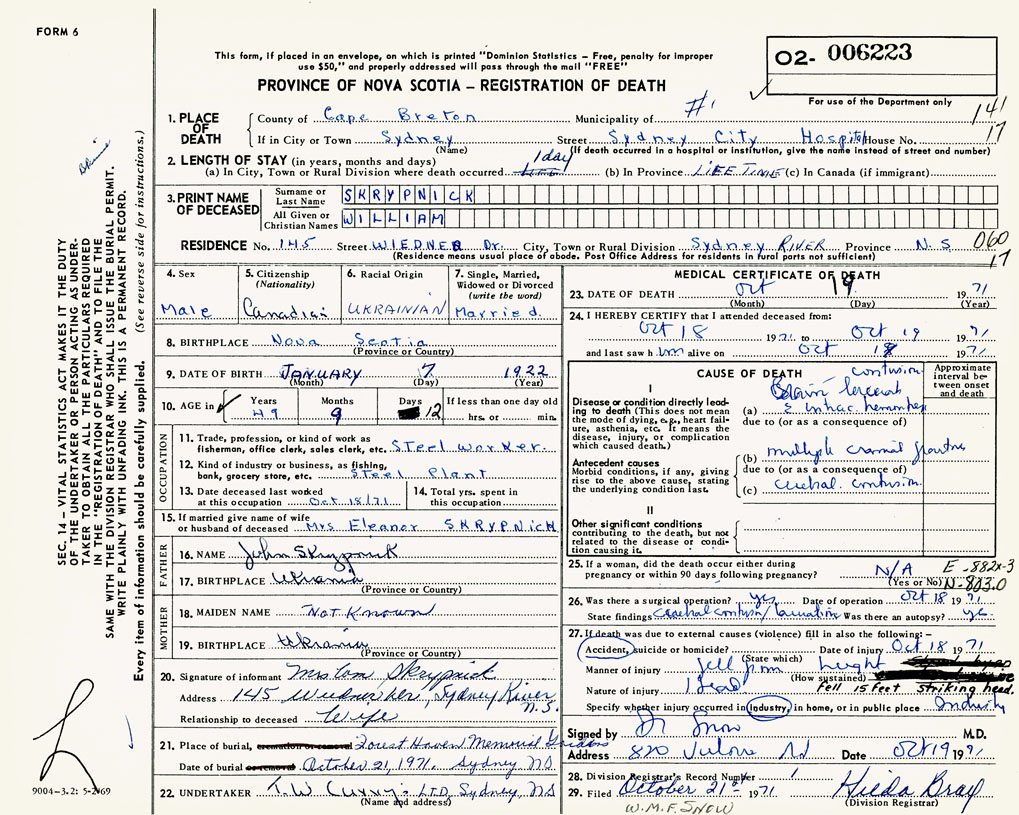 FORM 6
This form, if placed in an envelope, on which is printed "Dominion Statistics – Free, penalty for improper
use $50," and properly addressed will pass through the mail "FREE"
PROVINCE OF NOVA SCOTIA – REGISTRATION OF DEATH
02- 006223
For use of the Department only
#1
141
17
1. PLACE OF DEATH
County of Cape Breton Municipality of
If in City or Town Sydney Street Sydney City Hospital House No.
(Name) (If death occurred in a hospital or institution, give the name instead of street and number)
2. LENGTH OF STAY (in years, months and days)
(a) In City, Town or Rural Division where death occurred 1 day (b) In Province LIFE TIME (c) In Canada (if immigrant)
3. PRINT NAME OF DECEASED
Surname or Last Name SKRYPNICK
All Given or Christian Names WILLIAM
RESIDENCE No. 145 Street WIEDNER Dr. City, Town or Rural Division Sydney RIVER Province N.S 060
(Residence means usual place of abode. Post Office Address for residents in rural parts not sufficient) 17
4. Sex Male
5. Citizenship (Nationality) Canadian
6. Racial Origin UKRAINIAN
7. Single, Married, Widowed or Divorced (write the word) Married.
8. BIRTHPLACE Nova Scotia
(Province or Country)
9. DATE OF BIRTH JANUARY 7 1922
(Month) (Day) (Year)
10. AGE in Years 49 Months 9 Days 12 If less than one day old hrs. or min.
OCCUPATION
11. Trade, profession, or kind of work as
fisherman, office clerk, sales clerk, etc. Steel worker.
12. Kind of industry or business, as fishing,
bank, grocery store, etc. Steel Plant
13. Date deceased last worked
at this occupation Oct 18/71
14. Total yrs. spent in
this occupation
15. If married give name of wife
or husband of deceased Mrs Eleanor SKRYPNICK
FATHER
16. NAME John Skrypnick
17. BIRTHPLACE Ukrania
(Province or Country)
MOTHER
18. MAIDEN NAME Not Known
19. BIRTHPLACE Ukrania
(Province or Country)
20. Signature of informant Mrs Skrypnick
Address 145 Sydney River
N.S.
Relationship to deceased Wife
21. Place of burial, cremation or removal Forest Haven Memorial Gardens
Date of burial or removal October 21, 1971. Sydney N.S.
22. UNDERTAKER T.W. Curry LTD, Sydney, NS
(Name and address)
MEDICAL CERTIFICATE OF DEATH
23. DATE OF DEATH Oct 19 1971
(Month) (Day) (Year)
24. I HEREBY CERTIFY that I attended deceased from:
Oct 18 1971 to Oct 19 1971
and last saw him alive on Oct 18 1971
CAUSE OF DEATH
Approximate interval between onset and death
I
Disease or condition directly leading to death (This does not mean the mode of dying, e.g., heart failure, asthenia, etc. It means the disease, injury, or complication which caused death.)
contusion
(a) Brain
due to (or as a consequence of)
Antecedent causes
Morbid conditions, if any, giving rise to the above cause, stating the underlying condition last.
(b) multiple cranial fracture
due to (or as a consequence of)
(c) cerebral contusion
II
Other significant conditions contributing to the death, but not related to the disease or condition causing it.
25. If a woman, did the death occur either during
pregnancy or within 90 days following pregnancy? N/A
(Yes or No)
E-882x-3
N-803.0
26. Was there a surgical operation? yes Date of operation Oct 18 1971
State findings cerebral contusion / laceration Was there an autopsy? yes
27. If death was due to external causes (violence) fill in also the following:–
Accident, suicide or homicide? Date of injury Oct 18 1971
(State which)
Manner of injury fell from height
(How sustained)
Nature of injury Head Fell 15 Feet striking head.
Specify whether injury occurred in Industry, in home, or in public place Industry
Signed by Dr Snow M.D.
Address 820 Date Oct 19 1971
28. Division Registrar's Record Number 1
29. Filed October 21st 1971 Hilda Bray
(Division Registrar)
W.M.F. SNOW
SEC. 14 – VITAL STATISTICS ACT MAKES IT THE DUTY
OF THE UNDERTAKER OR PERSON ACTING AS UNDER-
TAKER TO OBTAIN ALL THE PARTICULARS REQUIRED
IN THE "REGISTRATION OF DEATH" AND TO FILE THE
SAME WITH THE DIVISION REGISTRAR WHO SHALL ISSUE THE BURIAL PERMIT.
WRITE PLAINLY WITH UNFADING INK. THIS IS A PERMANENT RECORD.
Every item of information should be carefully supplied. (See reverse side for instructions.)
9004-3.2: 5-2-69